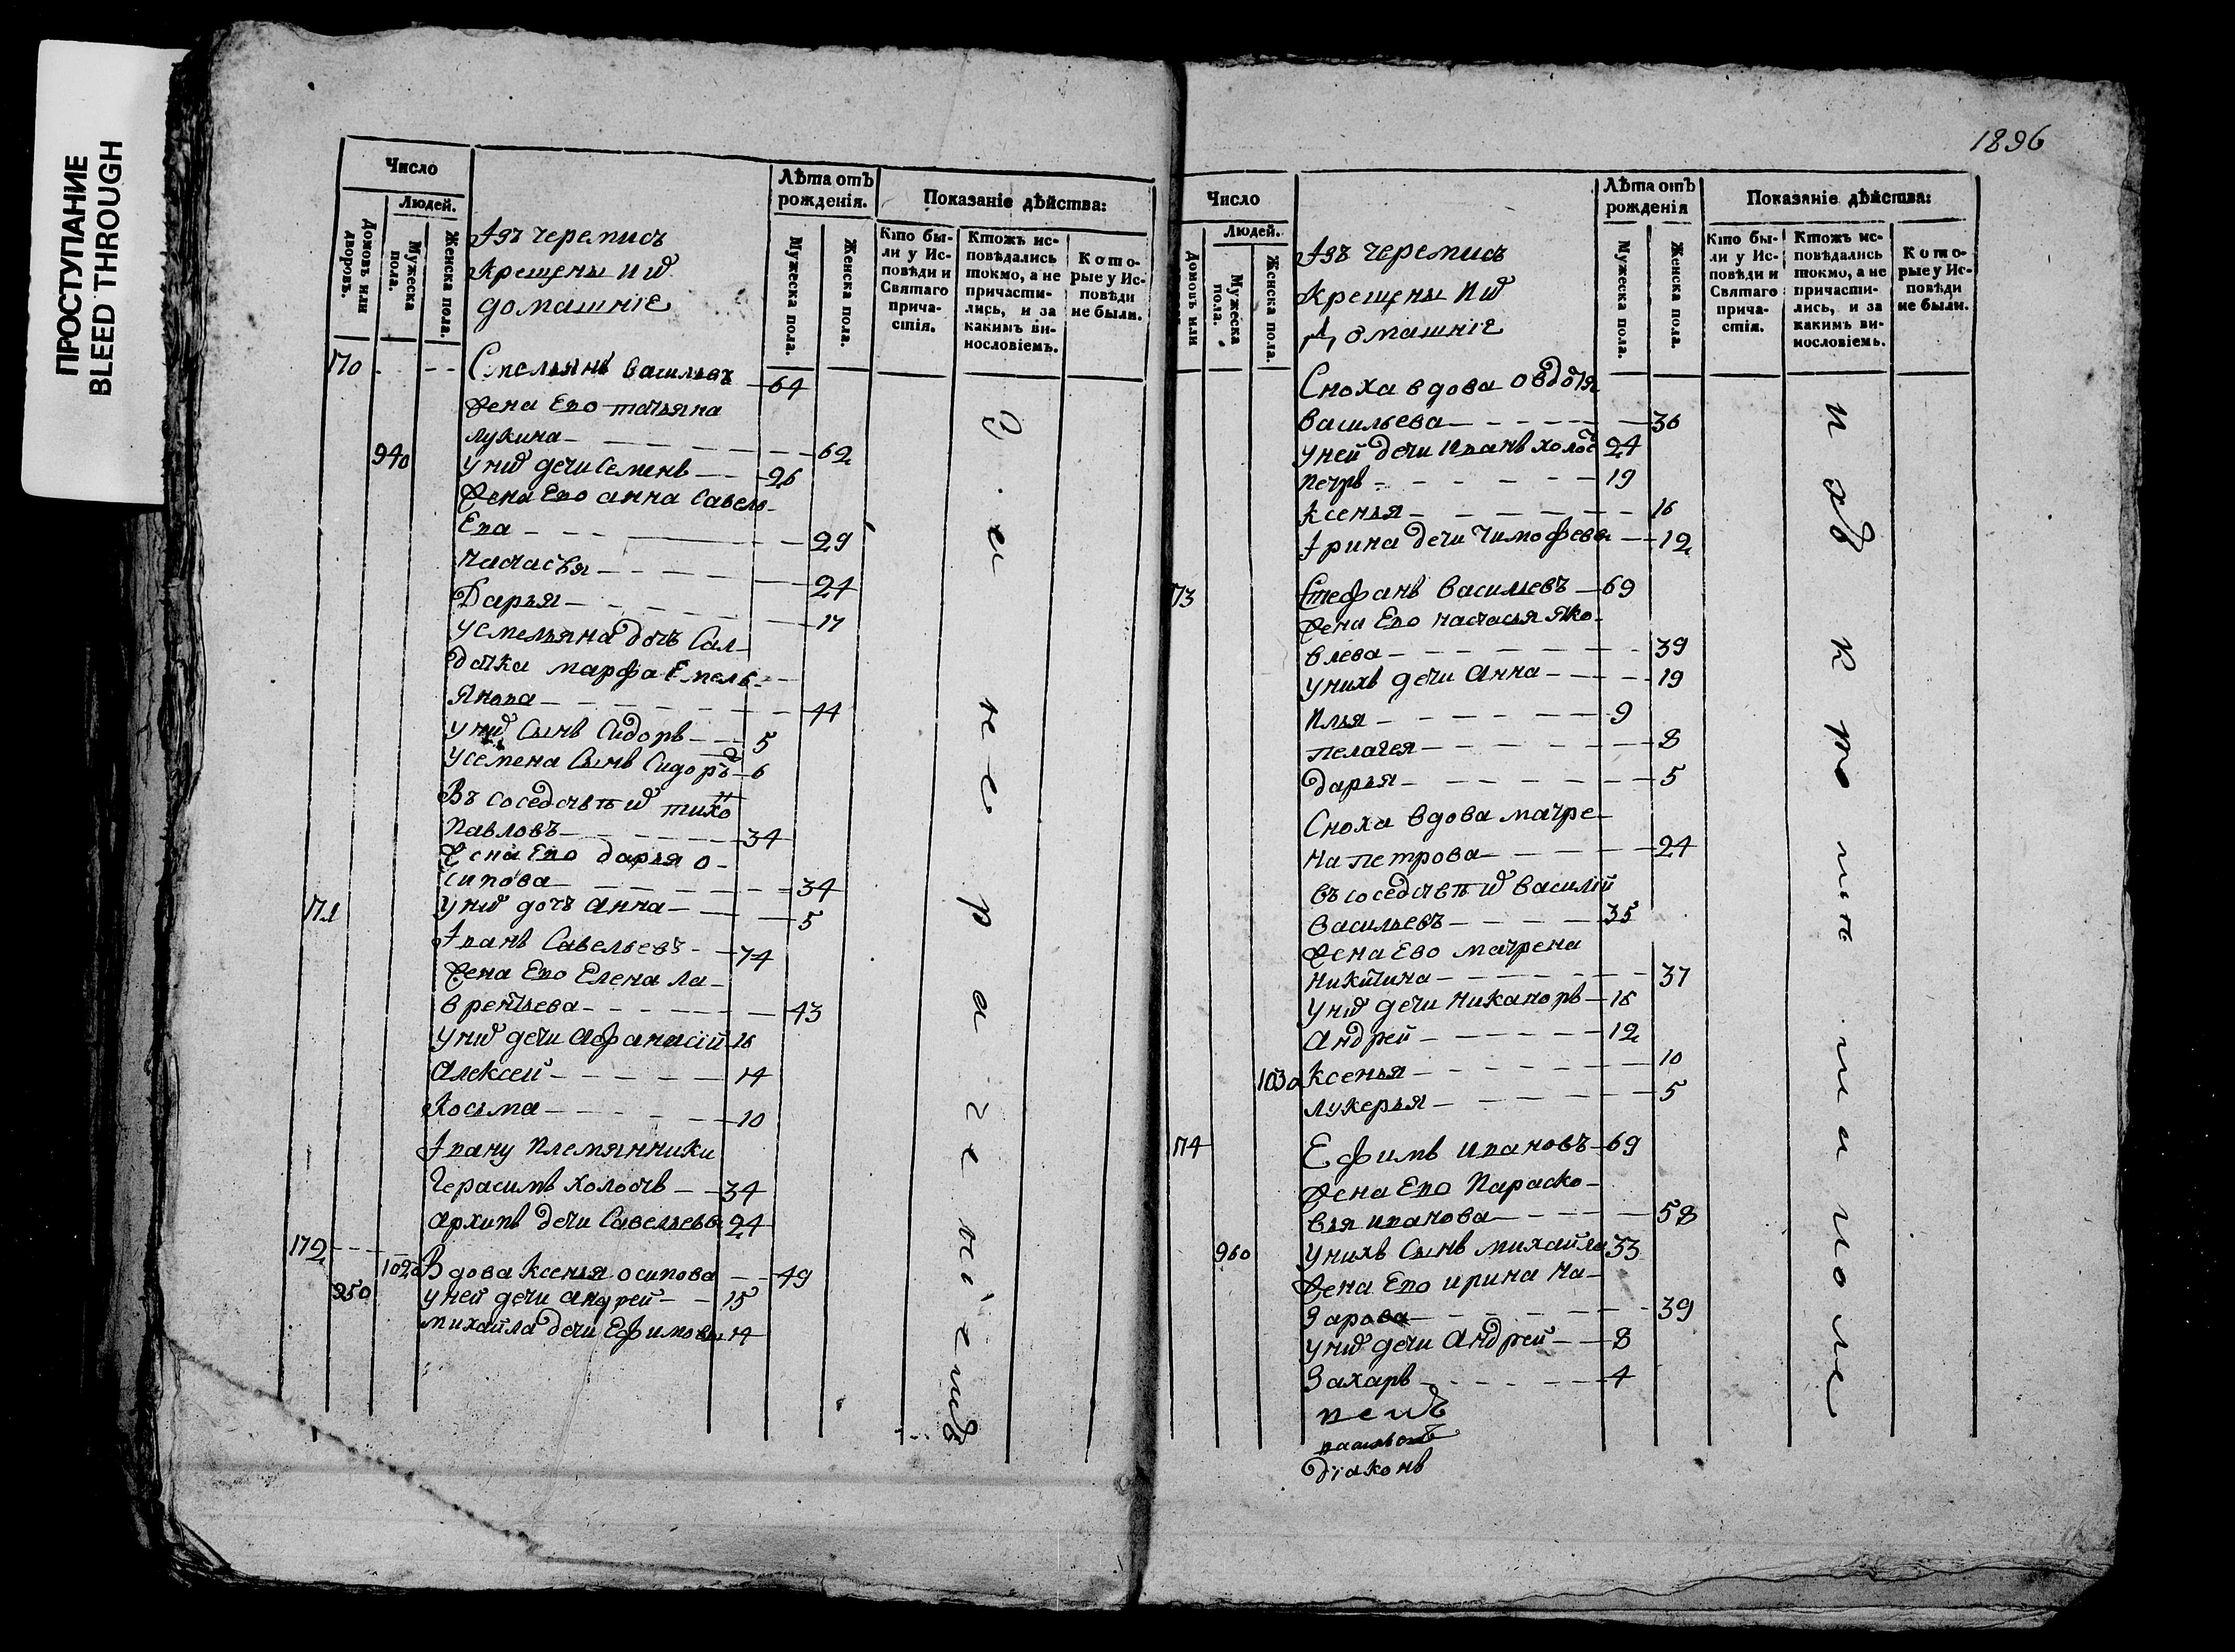 ПРОСТУПАНИЕ
BLEED THROUGH
1896
Число
Людей.
Домовъ или дворовъ.
Мужеска пола.
Женска пола.
Лѣта отъ рожденія.
Мужеска пола.
Женска пола.
Показаніе дѣйства:
Кто бы-
ли у Ис-
повѣди и
Святаго
прича-
стія.
Ктожъ ис-
повѣдались
токмо, а не
причасти-
лись, и за
какимъ ви-
нословіемъ.
Кото-
рые у Ис-
повѣди
не были.
домашніе
170 Емельянъ Васильевъ 64
жена Ево татьяна
лукина 62
940 у них дети Семенъ 26
жена Ево анна Савель-
Ева 29
Настасья 24
Дарья 17
у Емельяна дочь Сал-
датка марфа Емель-
Янова 44
у них Сынъ Сидоръ 5
у Семена Сынъ Сидоръ 6
Въ соседстве тихо
Павловъ 34
жена Ево дарья о-
сипова 34
у них дочь анна 5
171
Іванъ Савельевъ 74
жена Ево Елена ла-
врентьева 43
у них дети Афанасій 16
Алексей 14
Косьма 10
Івану племянники
Герасимъ холостъ 34
Архипъ дети Савельевы 24
172 1020 Вдова Ксенья осипова 49
950 у ней дети андрей 15
михайла дети Ефимовы 14
Число
Людей.
Домовъ или
Мужеска пола.
Женска пола.
Лѣта отъ рожденія
Мужеска пола.
Женска пола.
Показаніе дѣйства:
Кто бы-
ли у Ис-
повѣди и
Святаго
прича-
стія.
Ктожъ ис-
повѣдались
токмо, а не
причасти-
лись, и за
какимъ ви-
нословіемъ.
Кото-
рые у Ис-
повѣди
не были.
Домашніе
Сноха вдова овдотя
Васильева 36
у ней дети Иванъ холос 24
Петръ 19
Ксенья 16
Ірина дети Тимофеевы 12
173 Стефанъ Васильевъ 69
жена Ево настасья Яко-
влева 39
у нихъ дети Анна 19
Илья 9
пелагея 8
дарья 5
Сноха вдова матре-
на петрова 24
въ соседстве Василій
Васильевъ 35
жена Ево матрена
никитина 37
у них дети Никаноръ 16
Андрей 12
1030 Ксенья 10
лукерья 5
174 Ефимъ Ивановъ 69
жена Ево Параско-
вья иванова 58
960 у нихъ Сынъ михайла 33
жена Ево ирина На-
зарова 39
у них дети Андрей 8
Захаръ 4
діаконъ